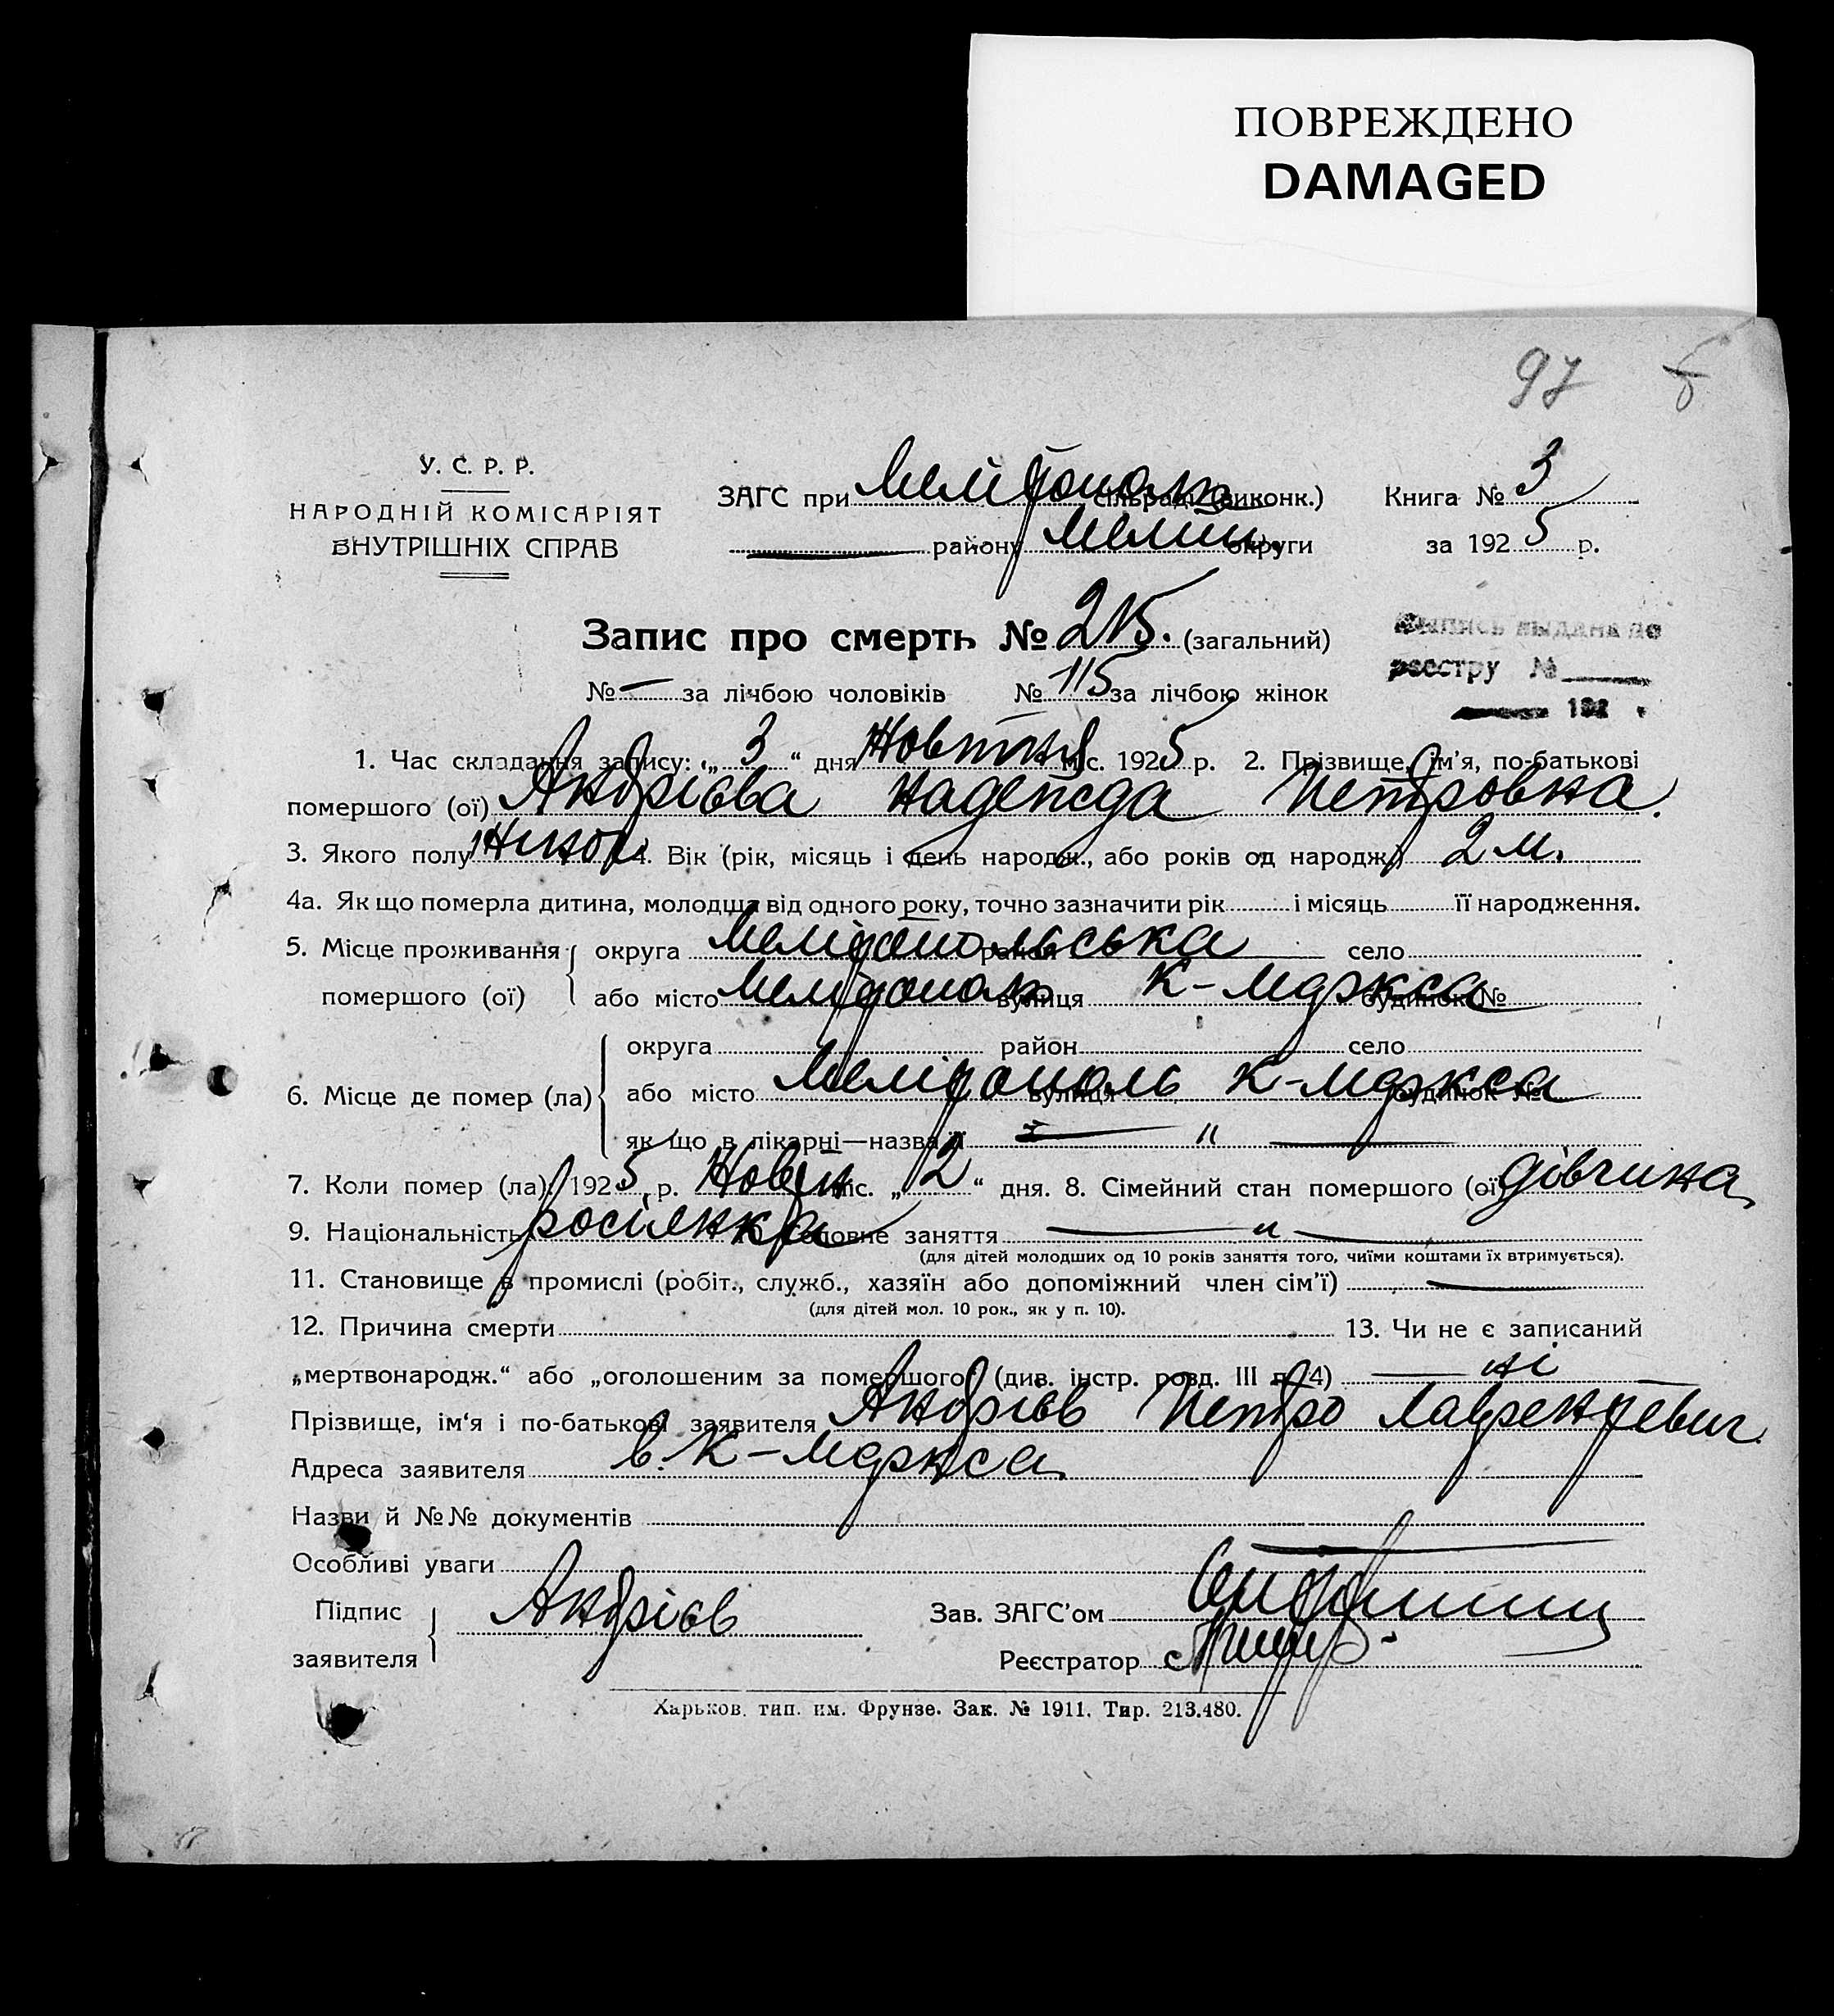 ПОВРЕЖДЕНО
DAMAGED
97
У. С. Р. Р.
НАРОДНІЙ КОМІСАРІЯТ
ВНУТРІШНІХ СПРАВ
ЗАГС при Мелітополь сільраді (виконк.)
району Меліт. округи
Книга № 3
за 1925 р.
Запис про смерть № 215. (загальний)
№ — за лічбою чоловіків № 115 за лічбою жінок
выдана по
реестру №
192
1. Час складання запису: „3“ дня Жовтня міс. 1925 р. 2. Прізвище, ім’я, по-батькові
помершого (ої) Андрієва Надежда Петровна.
3. Якого полу Жіноч. 4. Вік (рік, місяць і день народж., або років од народж.) 2 м.
4а. Як що померла дитина, молодша від одного року, точно зазначити рік і місяць її народження.
5. Місце проживання помершого (ої) округа Мелітопольська район село
або місто Мелітополь вулиця К-Маркса будинок №
6. Місце де помер (ла) округа район село
або місто Мелітополь вулиця К-Маркса будинок №
як що в лікарні—назва її — " —
7. Коли помер (ла): 1925 р. Жовтн міс. „2“ дня. 8. Сімейний стан помершого (ої) дівчина
9. Національність росіянка 10. Головне заняття — " —
(для дітей молодших од 10 років заняття того, чиїми коштами їх втримується).
11. Становище в промислі (робіт., служб., хазяїн або допоміжний член сім’ї) —
(для дітей мол. 10 рок., як у п. 10).
12. Причина смерти 13. Чи не є записаний
„мертвонародж.“ або „оголошеним за помершого“ (див. інстр. розд. III п. 4) — ні —
Прізвище, ім‘я і по-батькові заявителя Андрієв Петро Лаврентревич
Адреса заявителя в. К-Маркса
Назви й №№ документів
Особливі уваги
Підпис заявителя Андрієв
Зав. ЗАГС’ом
Реєстратор
Харьков. тип. им. Фрунзе. Зак. № 1911. Тир. 213.480.